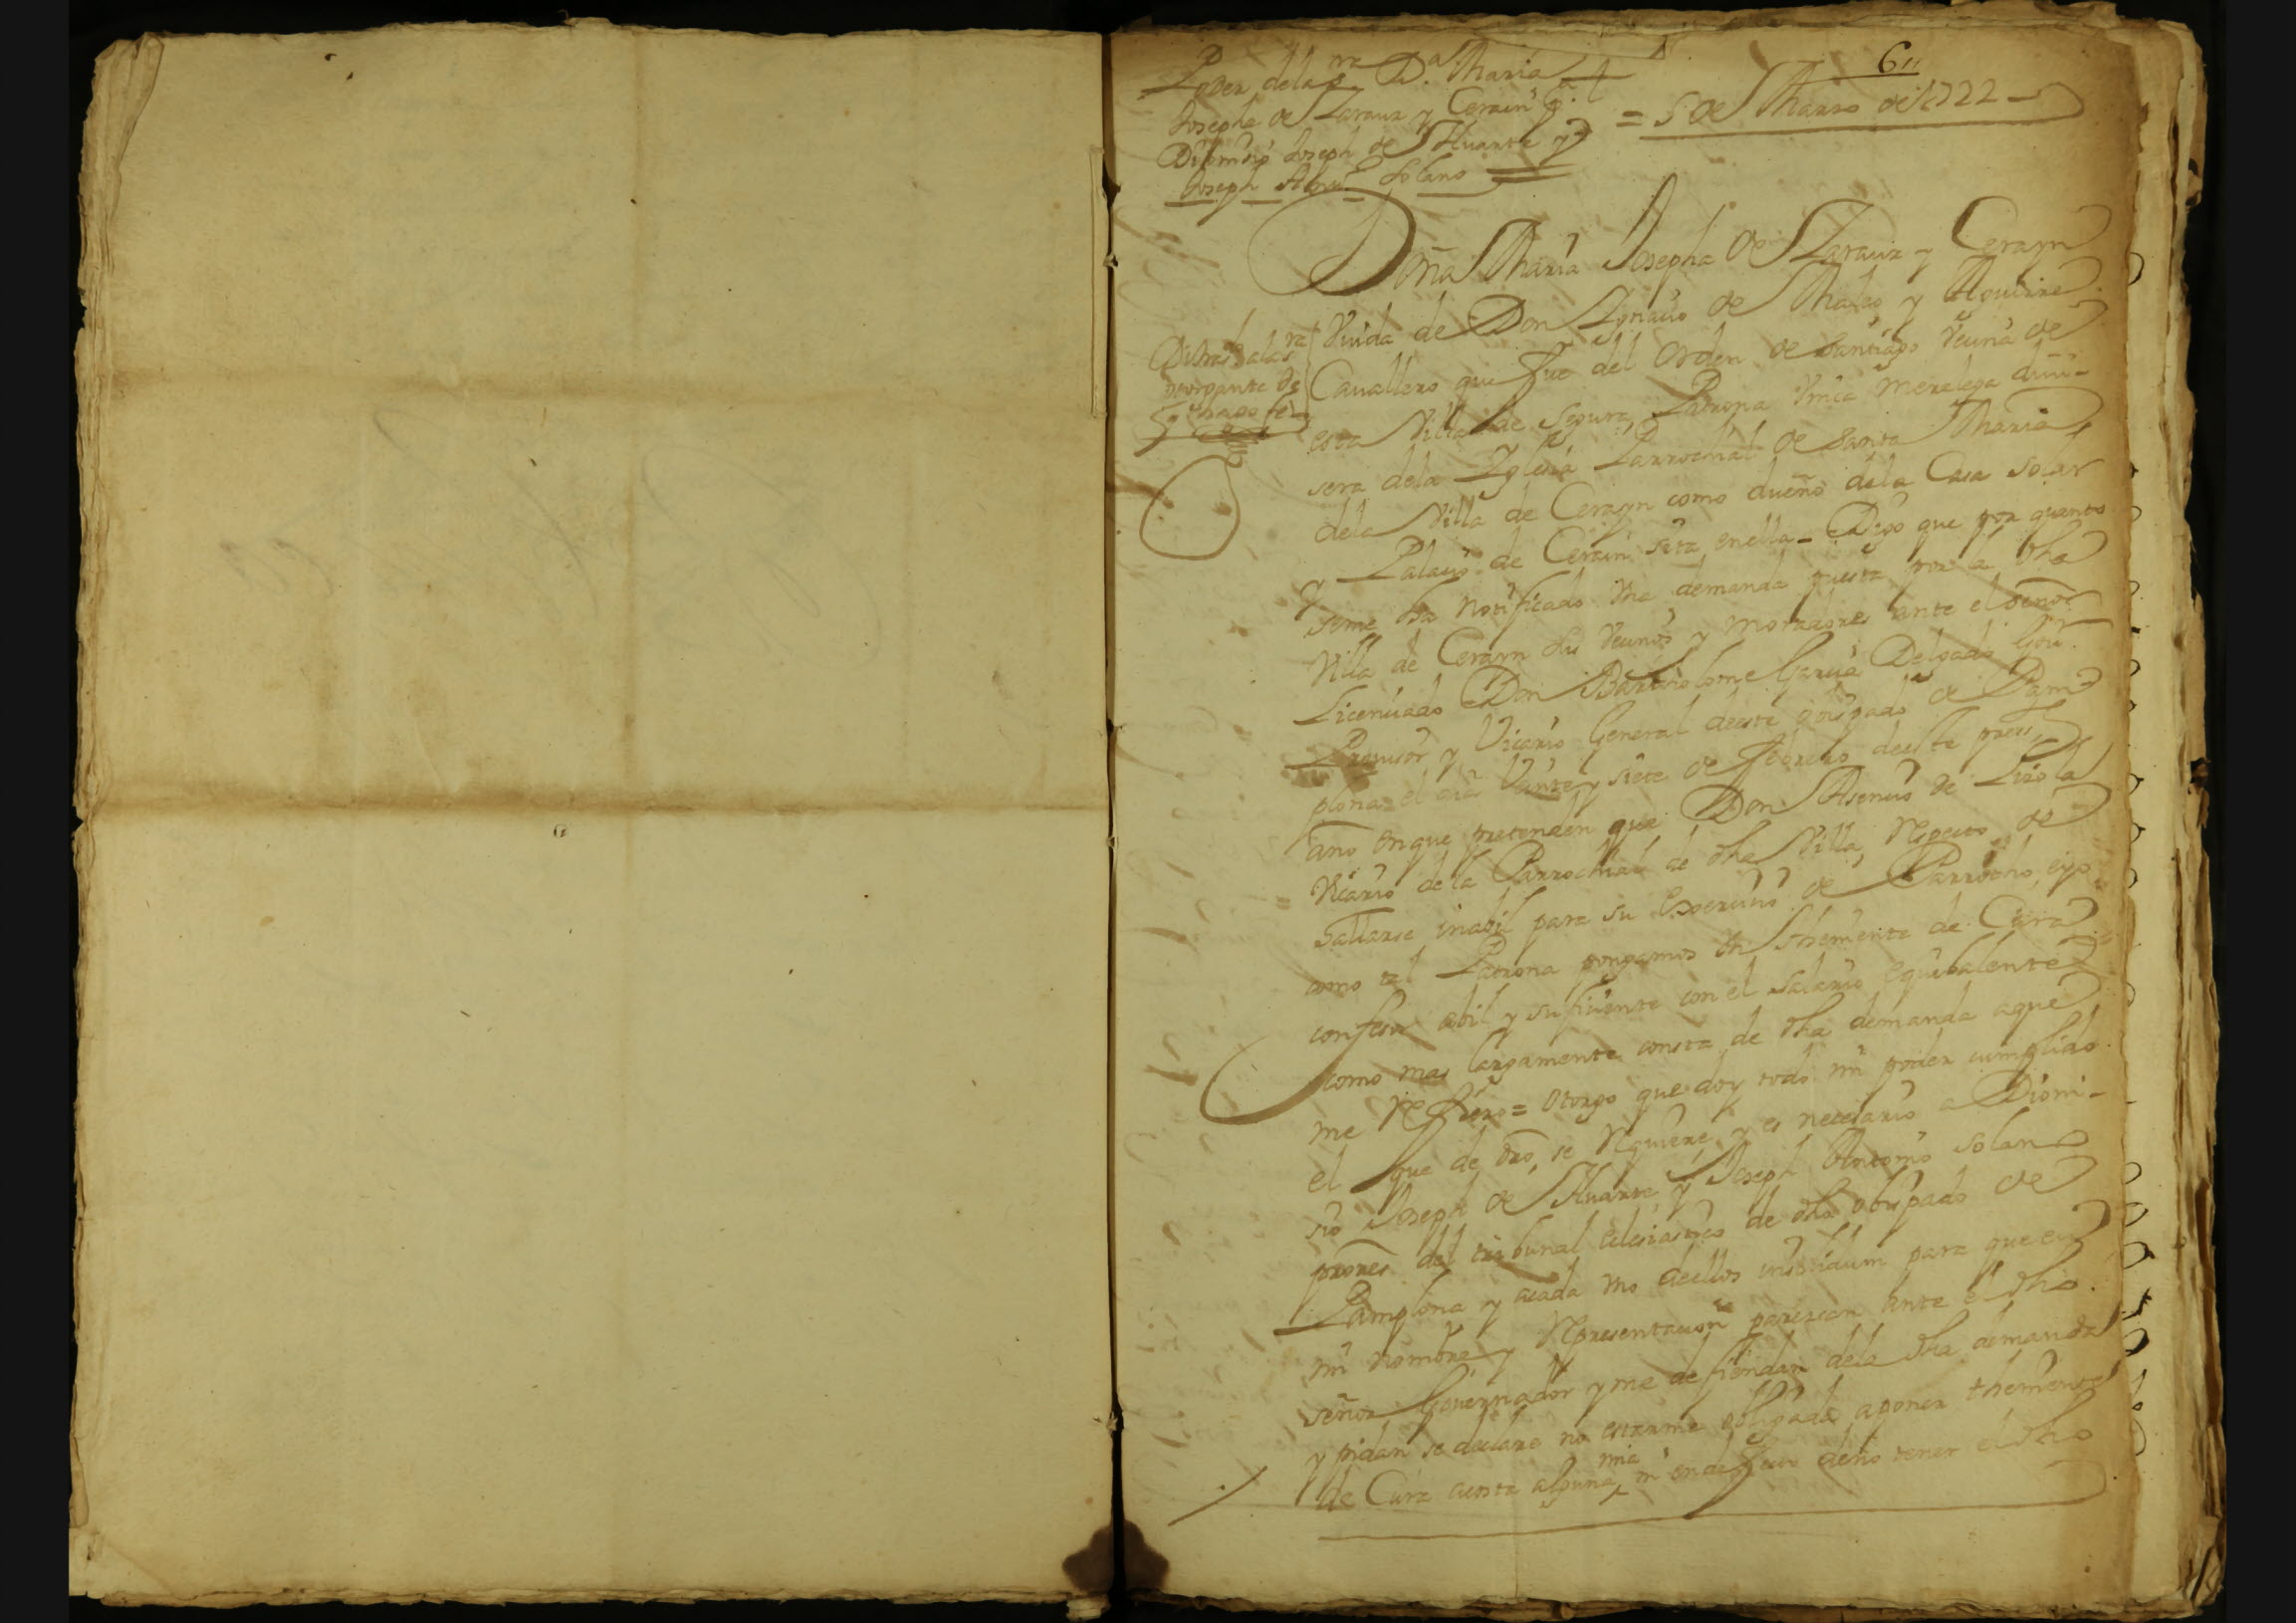 6
Poder dela s.ra D.a Maria
Josepha de Zarauz y Cerain p.a
Dionisio Joseph de Huarte y
Joseph Ant.o Solano
= 5 de Marzo de 1722 =
Doña Maria Josepha de Zarauz y Cerayn
Viuda de Don Ygnacio de Maleo y Aguirre
Cauallero que fue del Orden de Santiago Vecina de
esta Villa de Segura, Patrona Vnica Merelega diui-
sera dela Yglesia Parrochial de Santa Maria
dela Villa de Cerayn como dueño dela Casa Solar
y Palacio de Cerain sita enella = Digo que por quanto
seme ha Notificado Vna demanda puesta por la dha
Villa de Cerayn sus Vecinos y moradores ante el señor
Licenciado Don Bartholome Garcia Delgado Gou.r
Prouisor y Vicario General deeste obispado de Pam
plona el dia Vainte y siete de Febrero deeste press.te
año enque pretenden que Don Asencio de Lizola
Vicario dela Parrochial de dha Villa, Respecto de
hallarse inabil para su exercicio de Parrocho, eyo
como tal Patrona pongamos thheniente de Cura
confesor abil y suficiente con el salario equibalente
como mas largamente consta de dha demanda aque
me Refiero = Otorgo que doy todo mi poder cumplido
el que de dro, se Requiere y es necesario a Dioni-
sio Joseph de Huarte y Joseph Antonio Solano
prores. del tribunal eclesiastico de dho obispado de
Pamplona y acada vno deellos insolidum para que en
mi nombre y Representacion parescan ante el dho
señor Gouernador y me defiendan dela dha demanda
y pidan se declare no estarme obligada aponer theniente
de Cura acosta alguna mia ni endefecto deno tener el dho